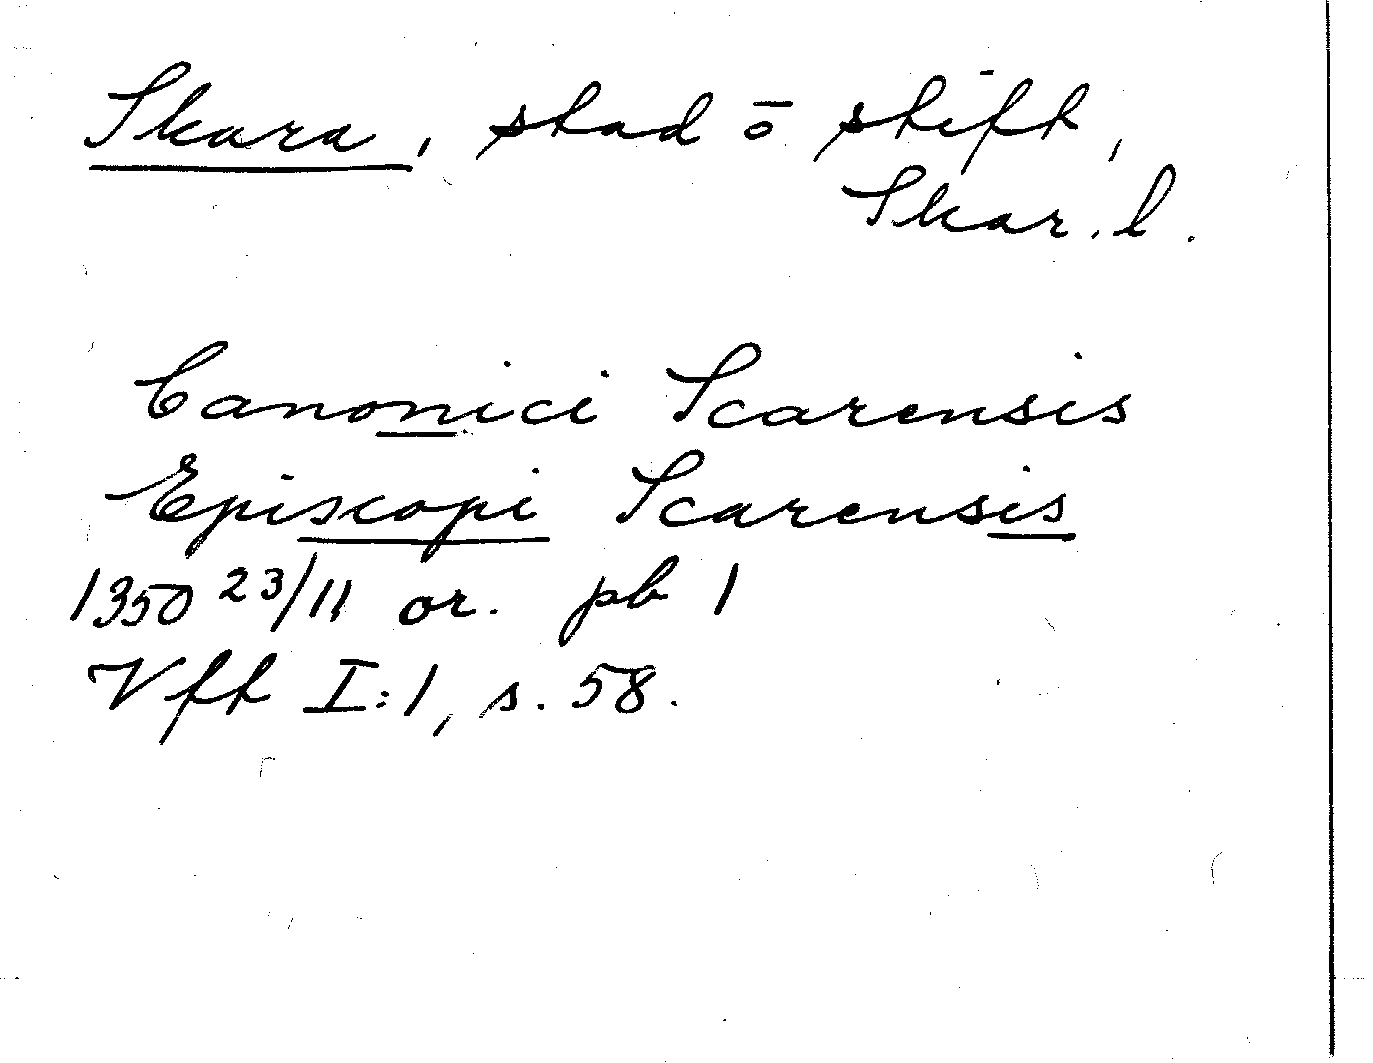 Skara, stad ō stift,
Skar. l.
Canonici Scarensis
Episcopi Scarensis
1350 23/11 or. pb 1
Vft I:1, s. 58.